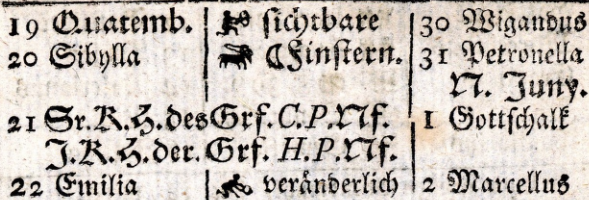 19 Quatemb. sichtbare 30 Wigandus
20 Sibylla ☾Finstern. 31 Petronella
N. Juny.
21 Sr. K. H. des Grf. C. P. Nf. 1 Gottschalk
J. K. H. der. Grf. H. P. Nf.
22 Emilia veränderlich 2 Marcellus